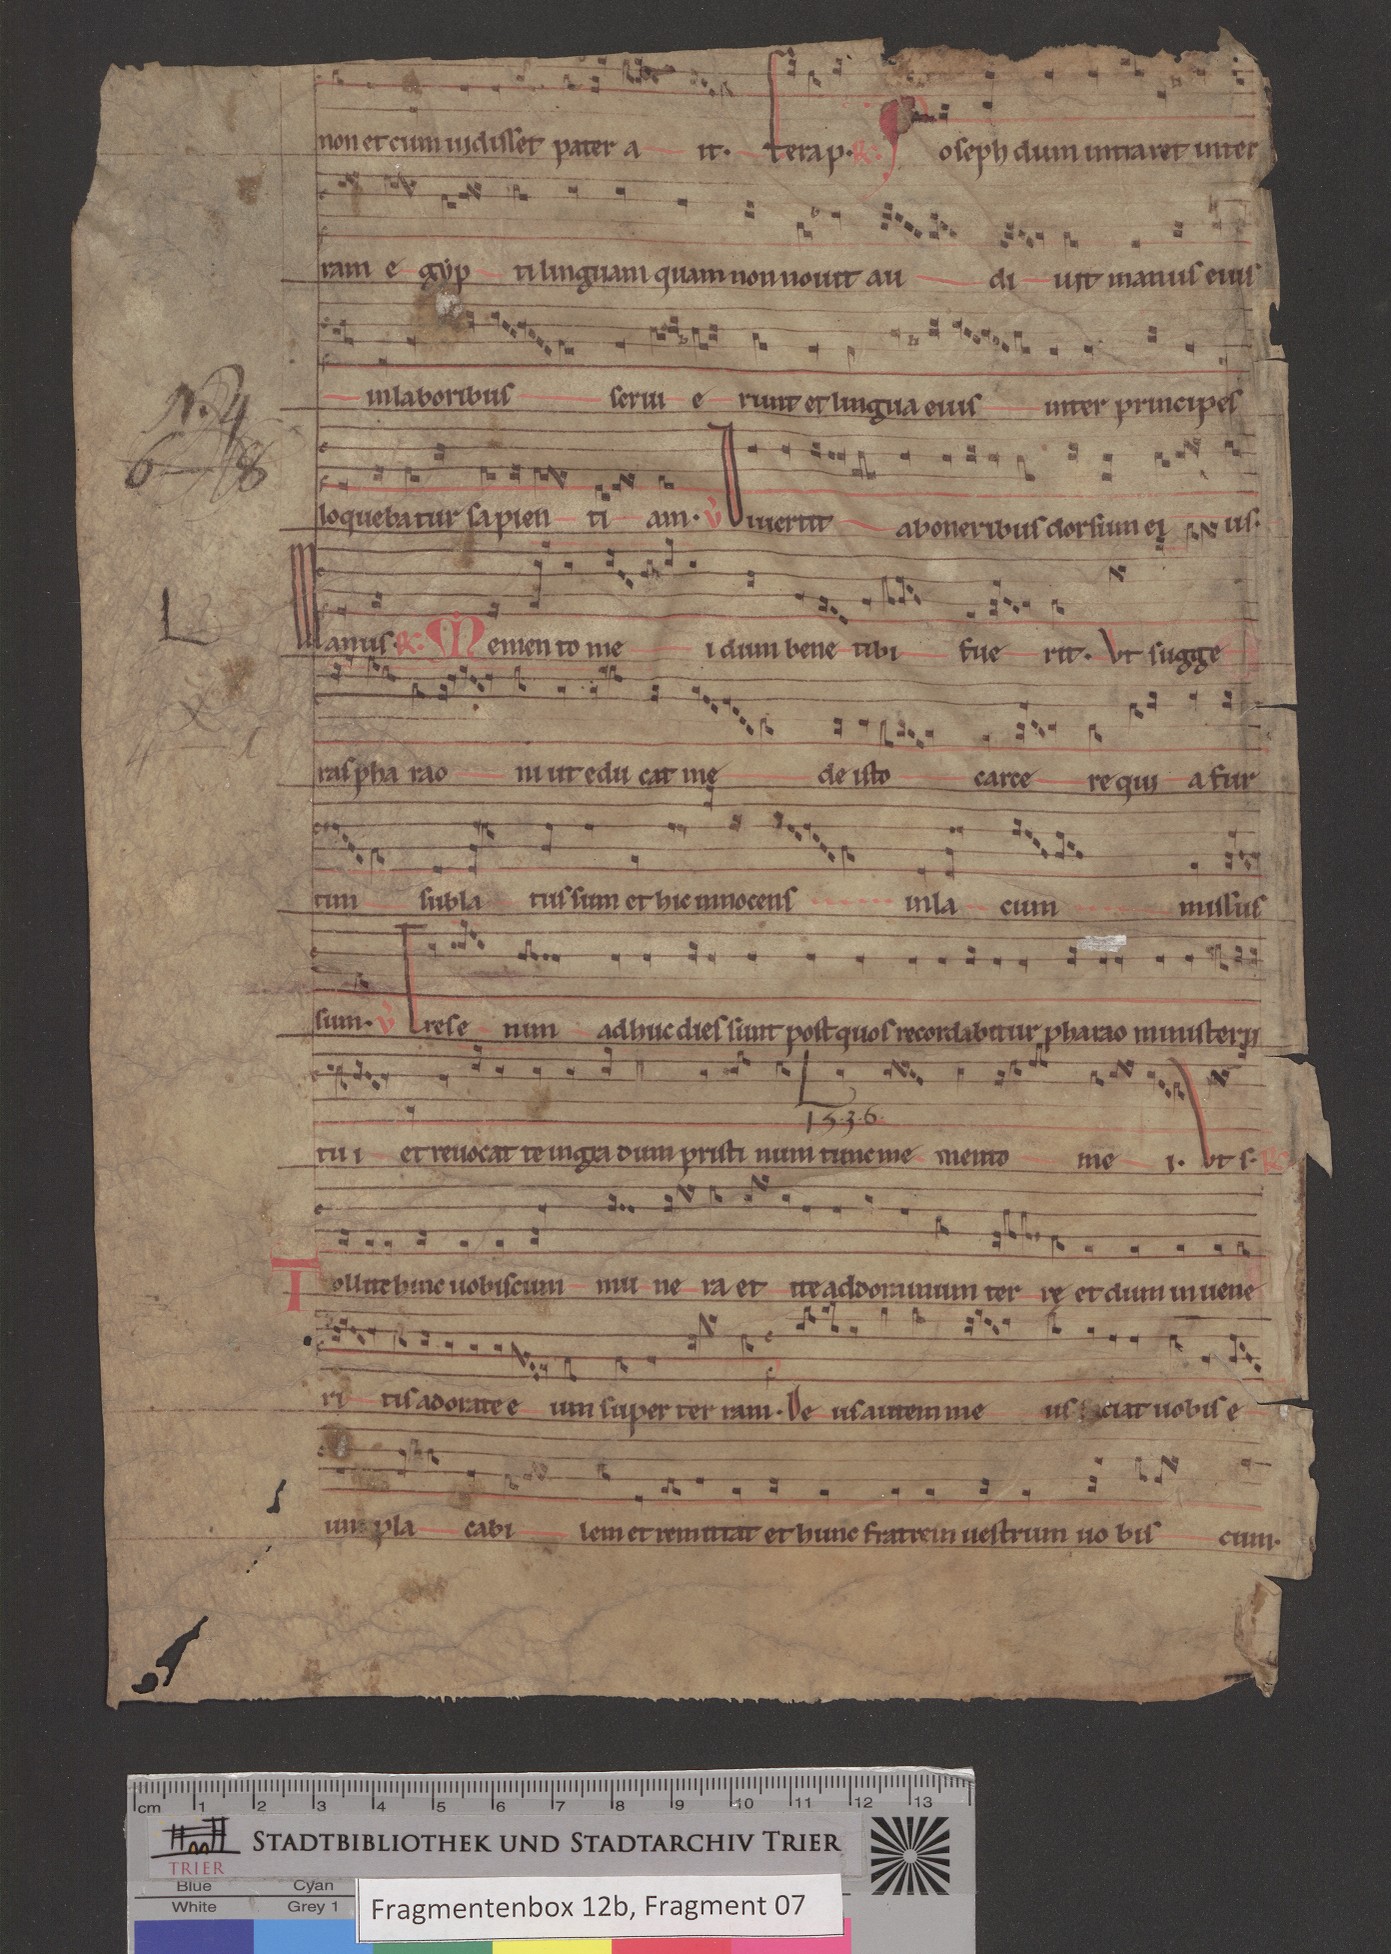 non et cum uidisset pater a it. fera p. R. Joseph dum intraret inter
ram egyp ti linguam quam non nouit au di uit manus eius
in laboribus serui e runt et lingua eius inter principes
loquebatur sapien ti am. V Diuertit ab oneribus dorsum ei us.
Manus R. Memen to me i dum bene tibi fue rit. Vt sugge
ras pha rao ni ut edu cat me de isto carce re qui a fur
tim subla tus sum et hic innocens in la cum missus
sum. V Tres e nim adhuc dies sunt post quos recordabitur pharao ministerii
tu i et reuocat te in gra dum pristi num tunc me mento me i. Vt s. R
Tollite hinc uobiscum mu ne ra et ite ad dominum ter re et dum in uene
ri tis adorate e um super ter ram. De us autem me us faciat uobis e
um pla cabi lem et remittat et hunc fratrem uestrum uo bis cum.
N. 4
6 8
L
1536.
cm 1 2 3 4 5 6 7 8 9 10 11 12 13
STADTBIBLIOTHEK UND STADTARCHIV TRIER
TRIER
Blue Cyan
White Grey 1
Fragmentenbox 12b, Fragment 07